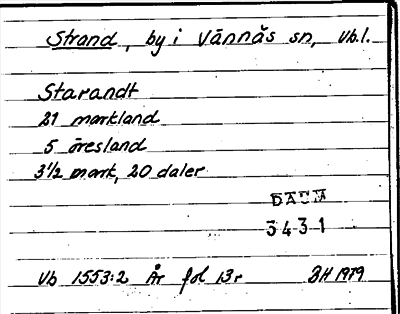 Strand, by i Vännäs sn, Vb.l.
Starandt
21 markland
5 öresland
3 1/2 mark, 20 daler
DAUM
3431
Vb 1553:2 År fol 13r BH 1979